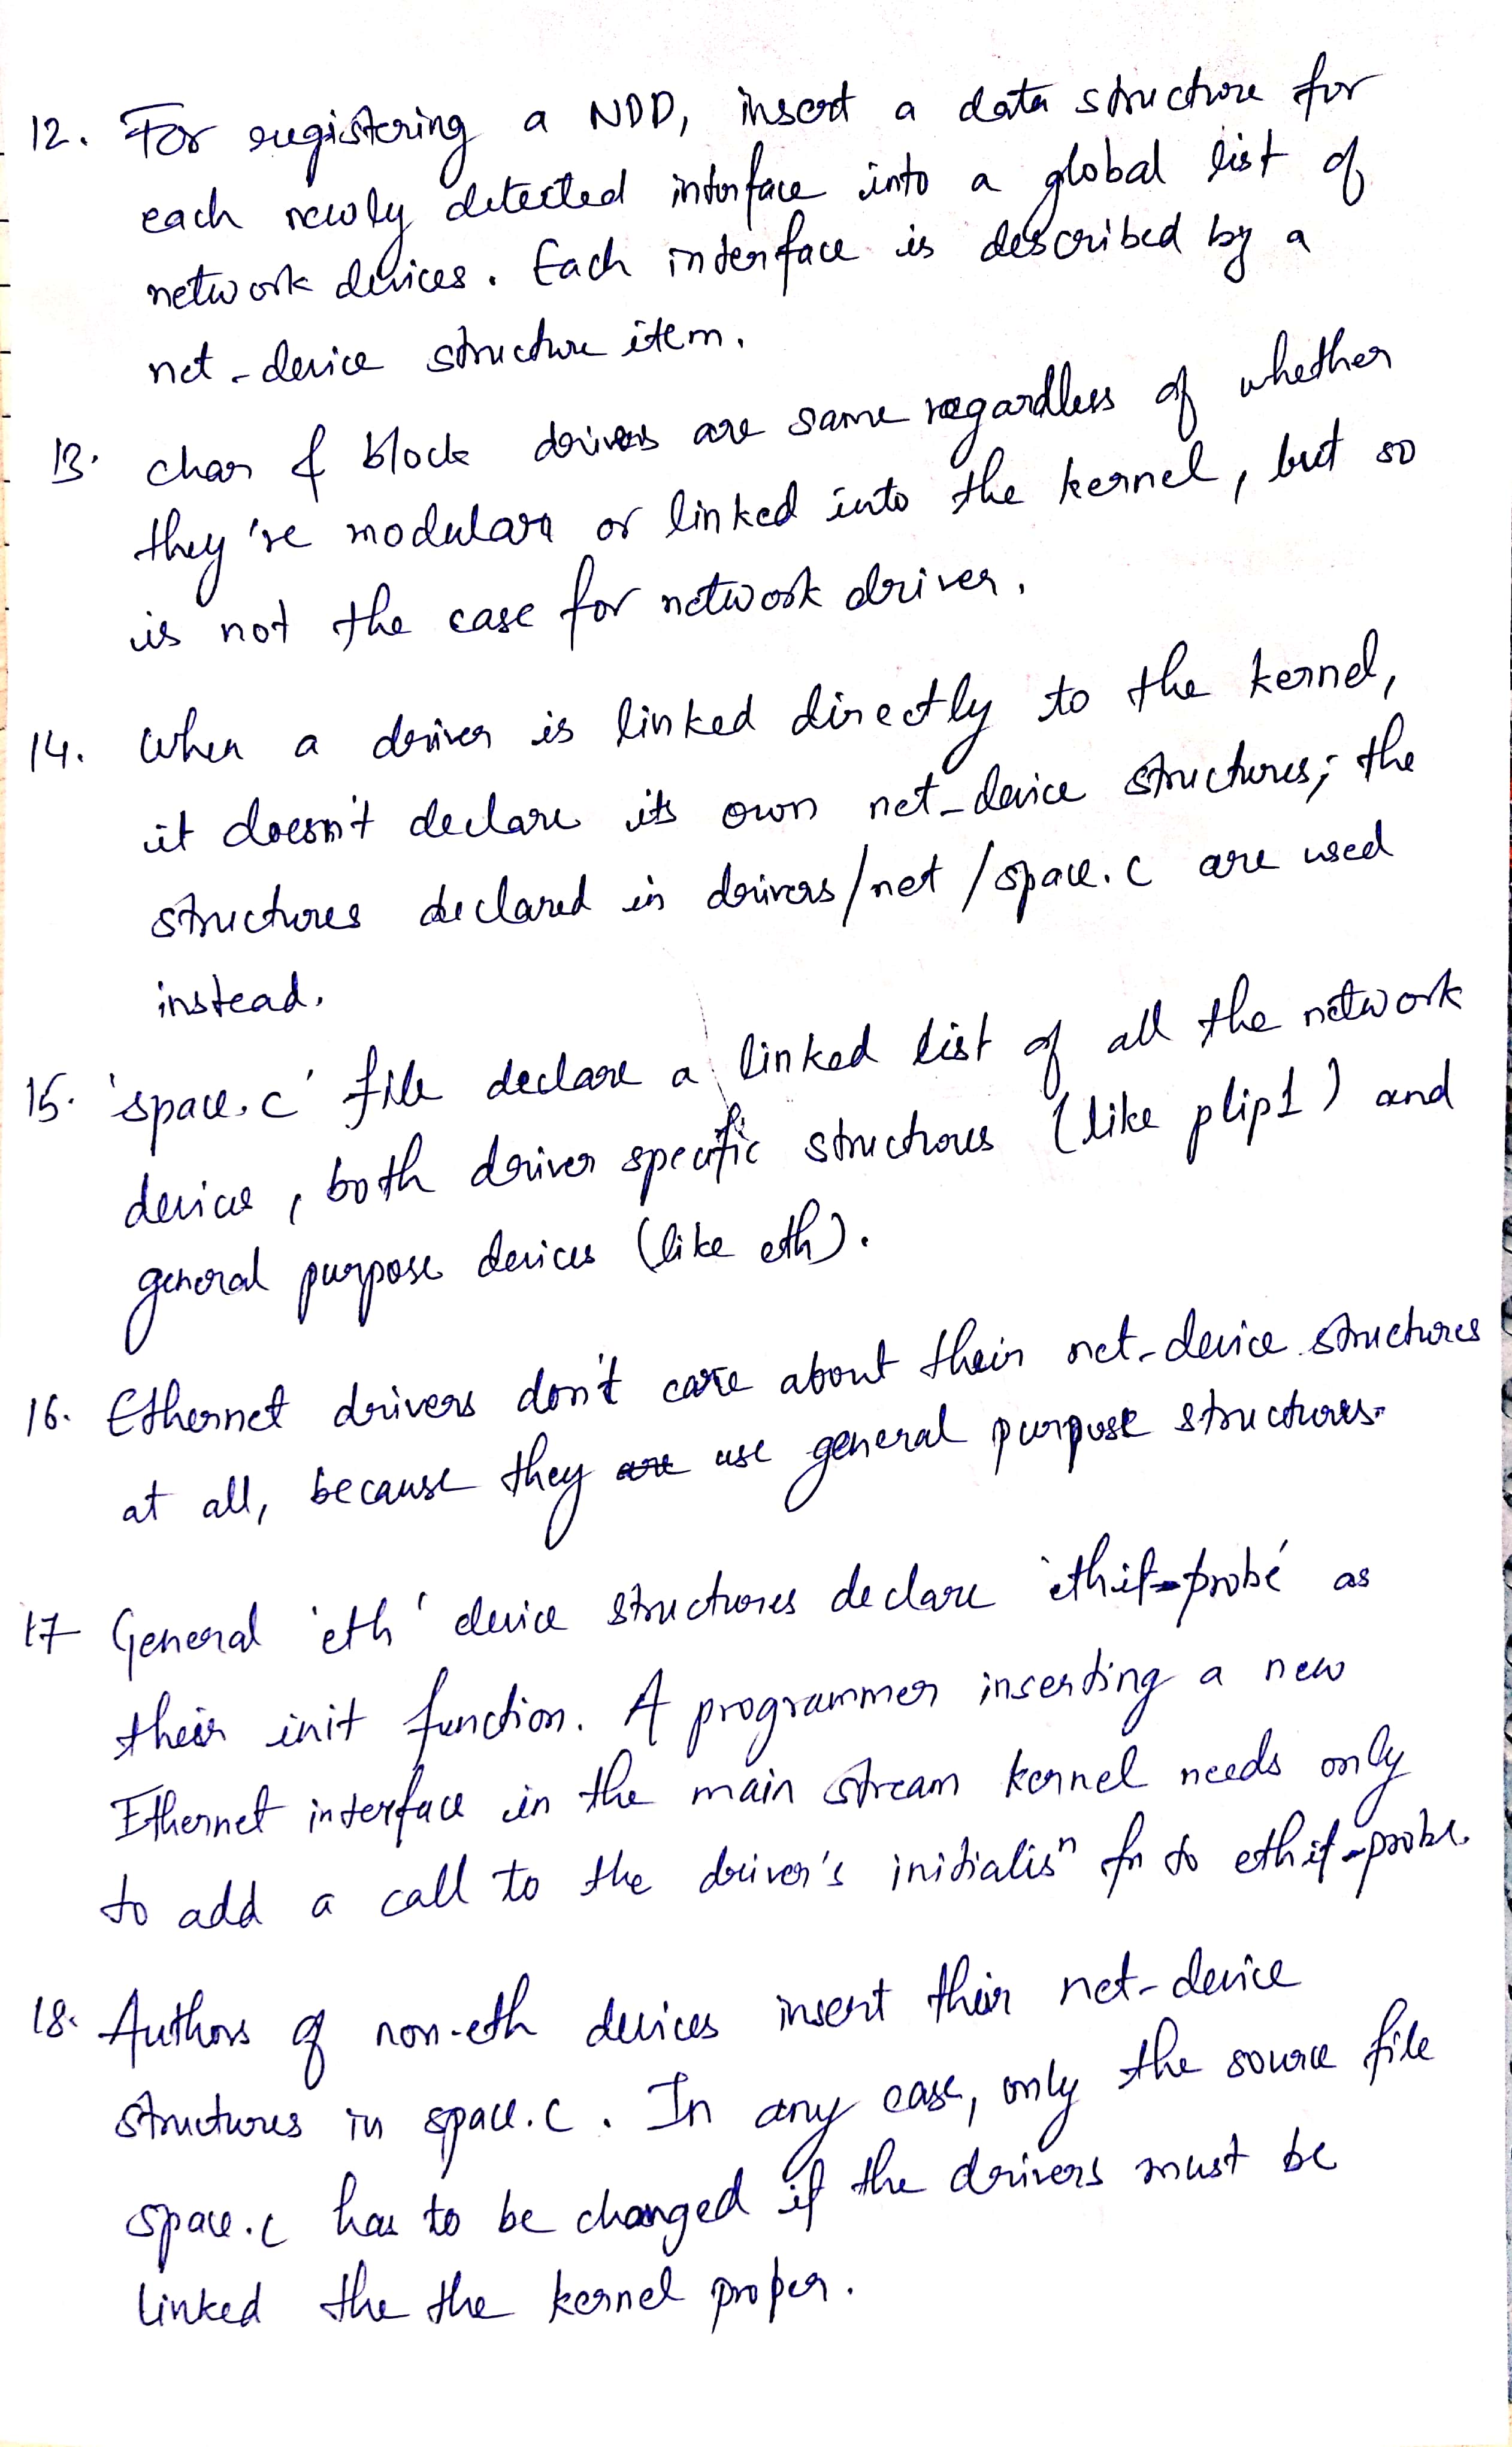 12. For registering a NDD, insert a data structure for
each newly detected interface into a global list of
network devices. Each interface is described by a
net-device structure item.
13. char & block drivers are same regardless of whether
they're modular or linked into the kernel, but so
is not the case for network driver.
14. When a driver is linked directly to the kernel,
it doesn't declare its own net_device structures; the
structures declared in drivers/net/space.c are used
instead.
15. 'space.c' file declare a linked list of all the network
device, both driver specific structures (like plip1) and
general purpose devices (like eth).
16. Ethernet drivers don't care about their net-device structures
at all, because they use general purpose structures.
17 General 'eth' device structures declare 'ethif-probe' as
their init function. A programmer inserting a new
Ethernet interface in the main stream kernel needs only
to add a call to the driver's initialisn fn to ethif-probe.
18. Authors of non-eth devices insert their net-device
structures in space.c. In any case, only the source file
space.c has to be changed if the drivers must be
linked the the kernel proper.